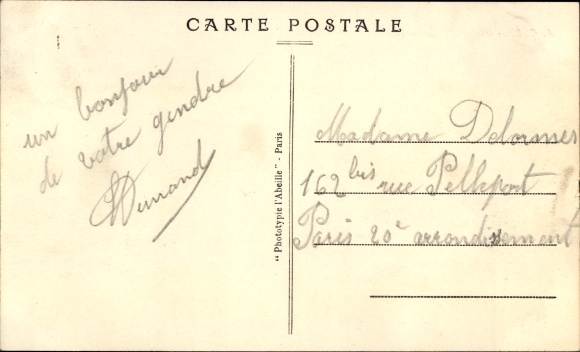 CARTE POSTALE
un bonjour
de votre gendre
"Phototypie l'Abeille" - Paris
Madame Delormes
162 bis rue Pelleport
Paris 20e arrondissement